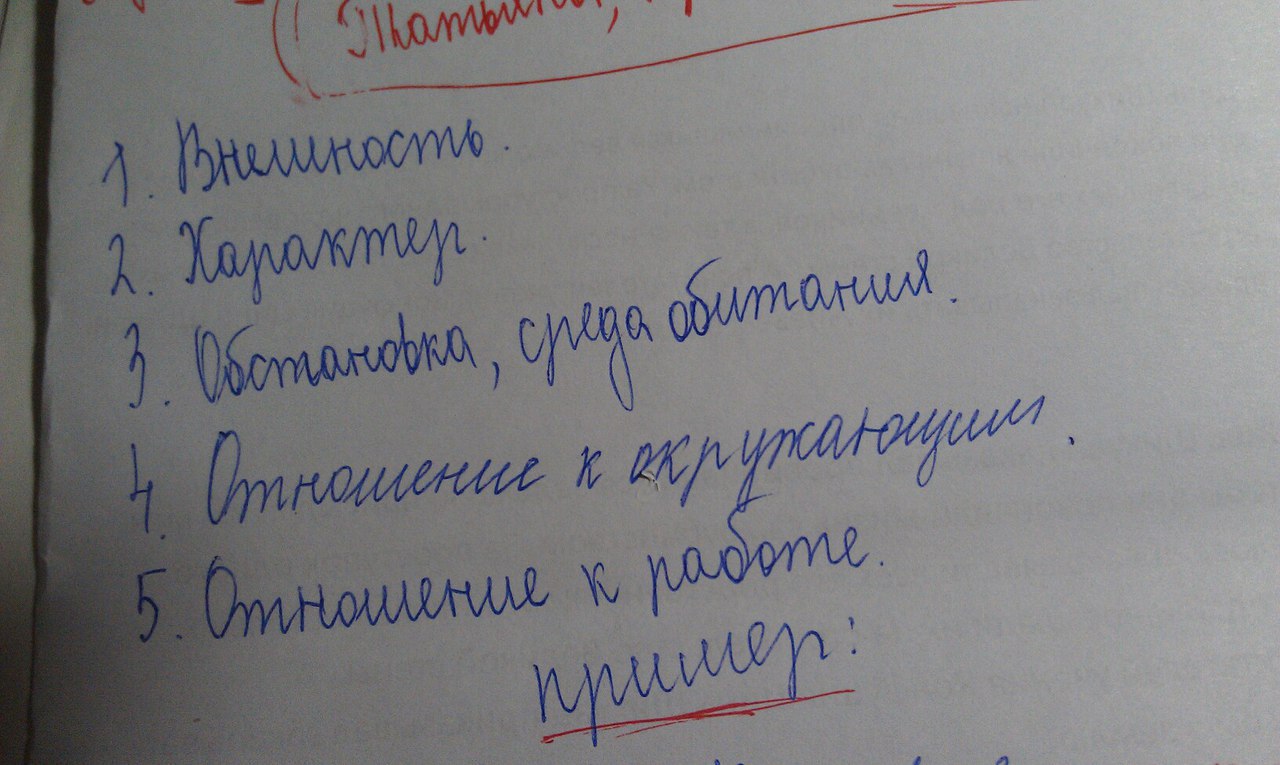 1. Внешность.
2. Характер.
3. Обстановка, среда обитания.
4. Отношение к окружающим.
5. Отношение к работе.
пример: